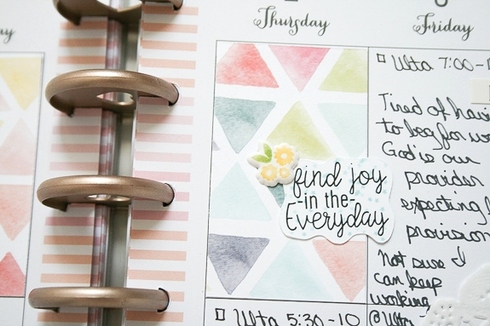 Thursday
Friday
Ulta 7:00-1
Tired of havi
to beg for wo
God is our
provider
expecting
provision
not sure
can keep
working
@Ulta-
find joy
in the
Everyday
Ulta 5:30-10